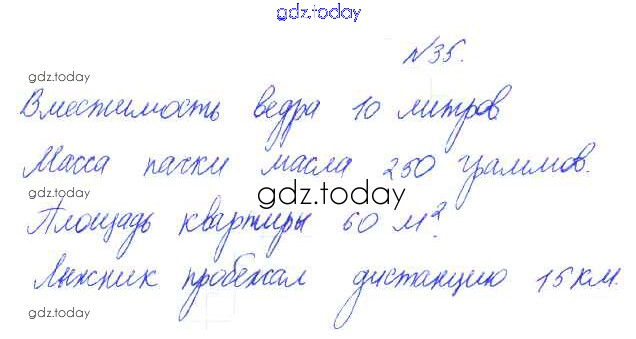 gdz.today
№35.
gdz.today
Вместимость ведра 10 литров
gdz.today
Масса пачки масла 250 граммов.
gdz.today
gdz.today
Площадь квартиры 60 м².
gdz.today
Лыжник пробежал дистанцию 15 км.
gdz.today